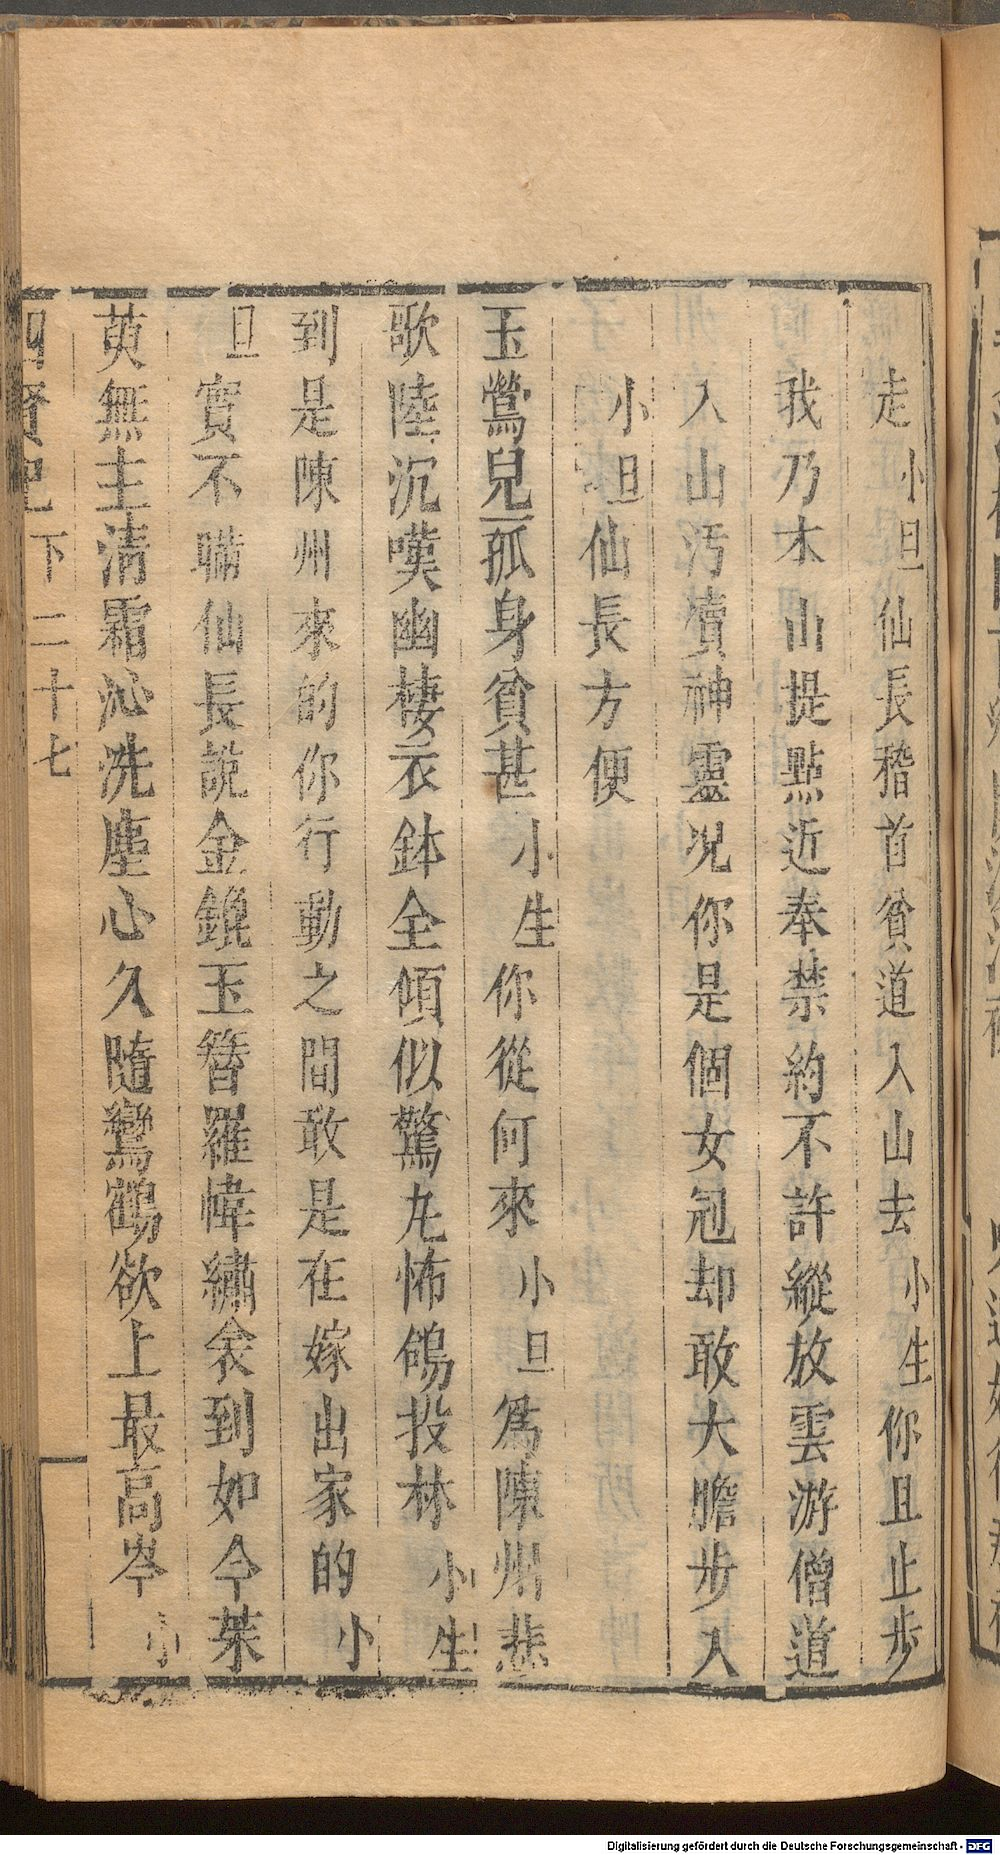 走小旦仙長稽首貧道入山去小生你且止步
我乃木山提點近奉禁約不許縱放雲游僧道
入山汚瀆神靈况你是個女冠却敢大膽步入
小旦仙長方便
玉鶯兒孤身貧甚小生你從何來小旦爲陳州悲
歌陸沉嘆幽棲衣鉢全傾似驚尨怖鴿投林小生
到是陳州來的你行動之間敢是在嫁出家的小
旦實不瞞仙長說金鏡玉簪羅幃繡衾到如今茱
萸無主清霜沁洗塵心久隨鸞鶴欲上最高岑小
四賢記
下二十七
Digitalisierung gefördert durch die Deutsche Forschungsgemeinschaft - DFG